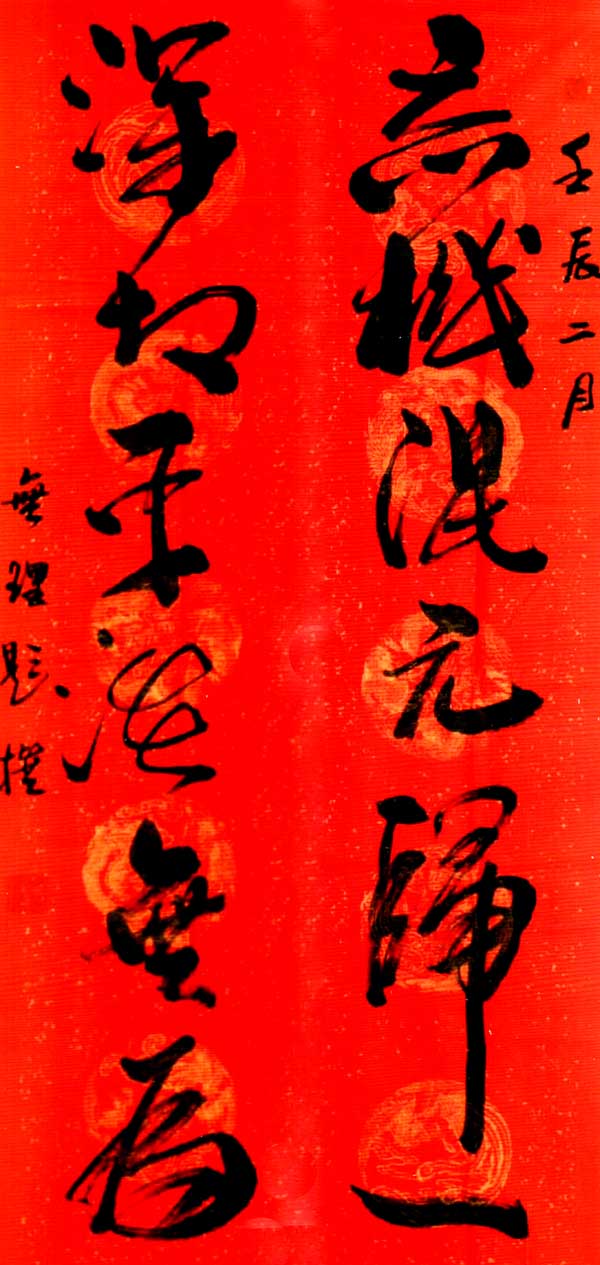 壬辰二月
忘機混元歸一
深切平無為
無理題撰